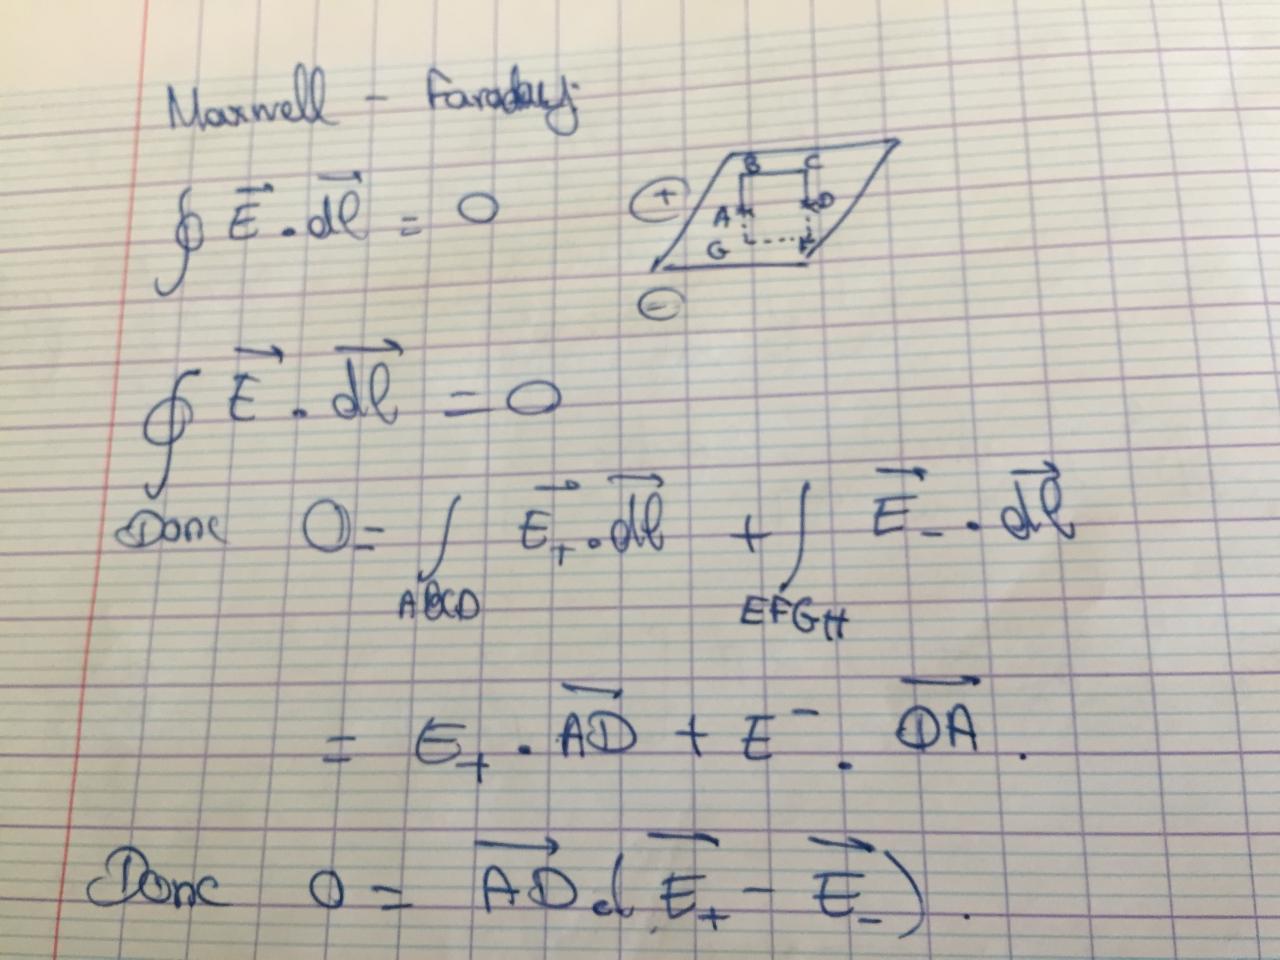 Maxwell - Faraday:
∮ E⃗ . dℓ⃗ = 0
B C
+
A D
G F
-
∮ E⃗ . dℓ⃗ = 0
Donc 0 = ∫ E⃗₊ . dℓ⃗ + ∫ E⃗₋ . dℓ⃗
ABCD EFGH
= E₊ . AD⃗ + E⁻ . DA⃗ .
Donc 0 = AD⃗ . ( E⃗₊ - E⃗₋ ) .